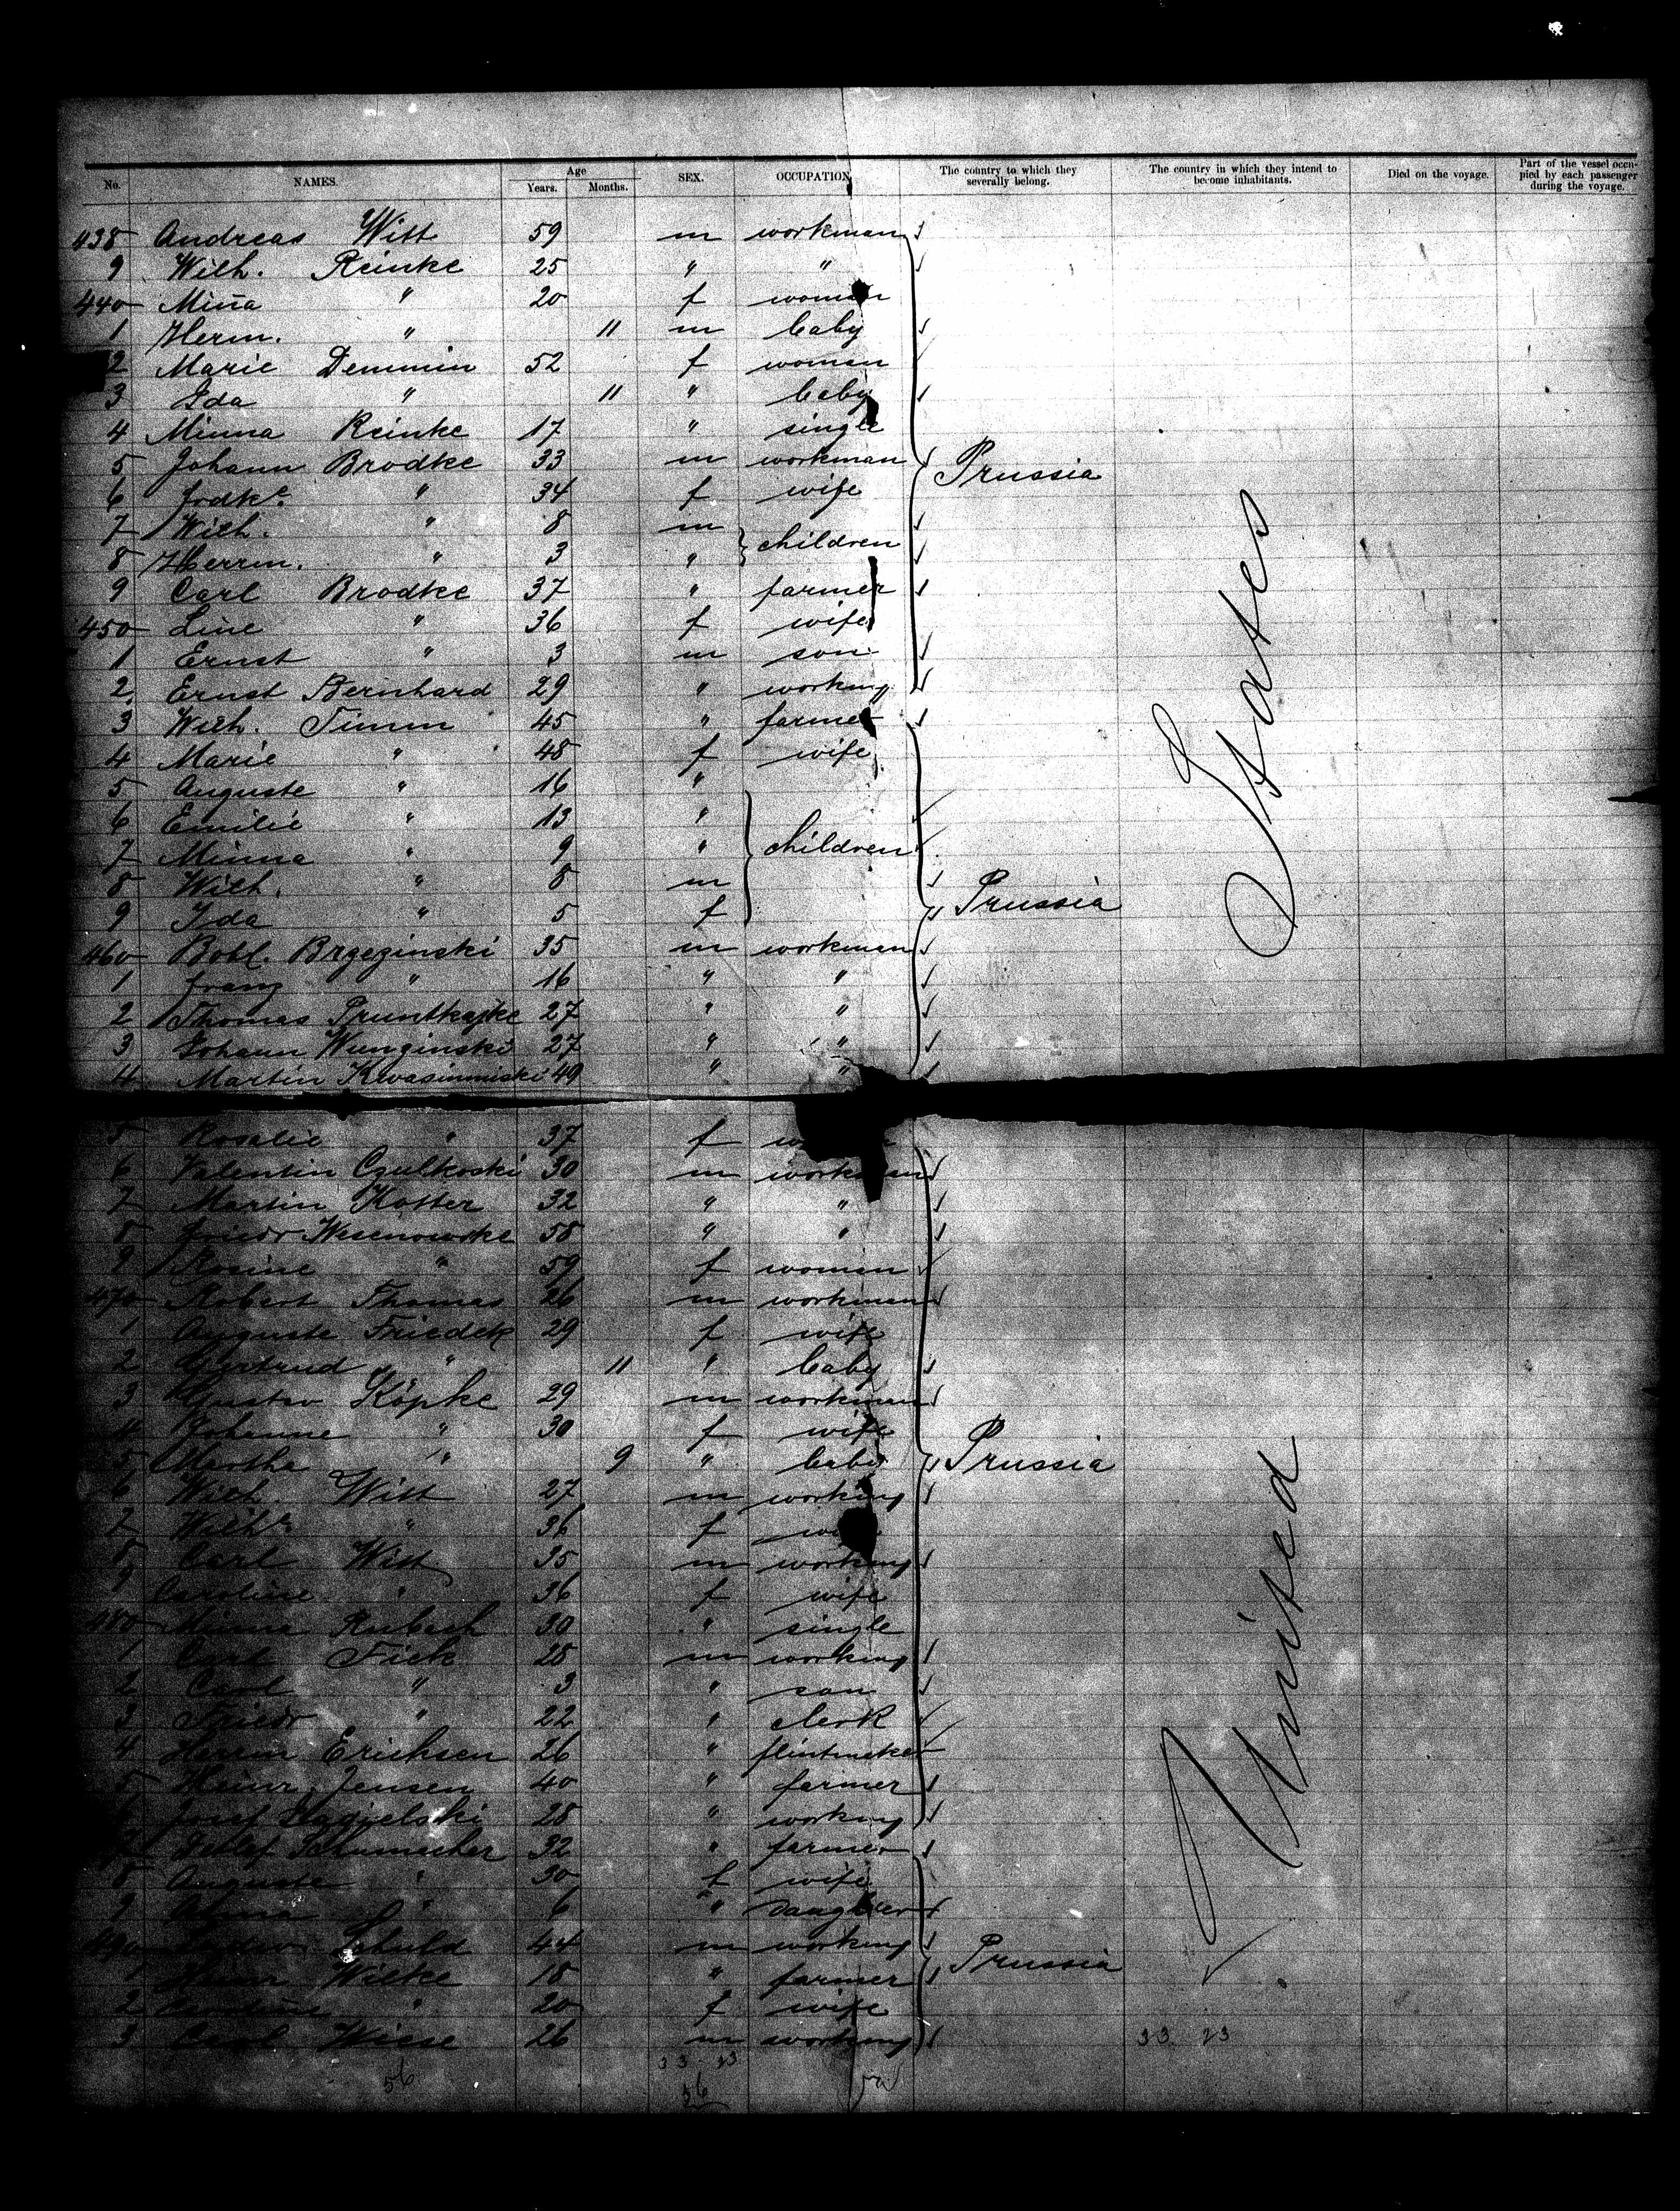 No. NAMES. Age Years. Months. SEX. OCCUPATION The country to which they severally belong. The country in which they intend to become inhabitants. Died on the voyage. Part of the vessel occupied by each passenger during the voyage.
438 Andreas Witt 59 m workman
9 Wilh. Reinke 25 " "
440 Mina " 20 f woman
1 Herm. " 11 m baby
2 Marie Demmin 52 f woman
3 Ida " 11 " baby
4 Minna Reinke 17 " single
5 Johann Brodke 33 m workman Prussia
6 " 34 f wife
7 Wilh. " 8 m
8 Herrm. " 3 " children
9 Carl Brodke 37 " farmer
450 Line " 36 f wife
1 Ernst " 3 m son
2 Ernst Bernhard 29 " working
3 Wilh. Timm 45 " farmer
4 Marie " 48 f wife
5 Auguste " 16 "
6 Emilie " 13 "
7 Minna " 9 " children
8 Wilh. " 8 m
9 Ida " 5 f Prussia
460 Brzezinski 35 m workman
1 Franz " 16 " "
2 Thomas 27 " "
3 Johann Wunginski 27 " "
4 Martin 49 " "
5 Rosalie " 37 f
6 Valentin Czulkoski 30 m workman
7 Martin Kotter 32 " "
8 Friedr 58 " "
9 Rosine " 59 f woman
470 Robert Thomas 26 m workman
1 Auguste 29 f wife
2 Gertrud " 11 " baby
3 Gustav Köpke 29 m workman
4 Johanne " 30 f wife
5 Martha " 9 " baby Prussia
6 Wilh. Witt 27 m working
7 Wilhe " 36 f
8 Carl Witt 35 m working
9 Caroline " 36 f wife
480 Minna Rubach 30 " single
1 Carl Fick 28 m working
2 Carl " 3 " son
3 Friedr " 22 " clerk
4 Herrm Erichsen 26 " flintmaker
5 Heinr. Jensen 40 " farmer
6 Josef 28 " working
7 Detlef Schumacher 32 " farmer
8 Auguste " 30 f wife
9 " 6 " daughter
490 Schuld 44 m working
1 Heinr Wilke 18 " farmer Prussia
2 Caroline " 20 f wife
3 Carl Wiese 26 m working
33 23 33 23
56 56
United States